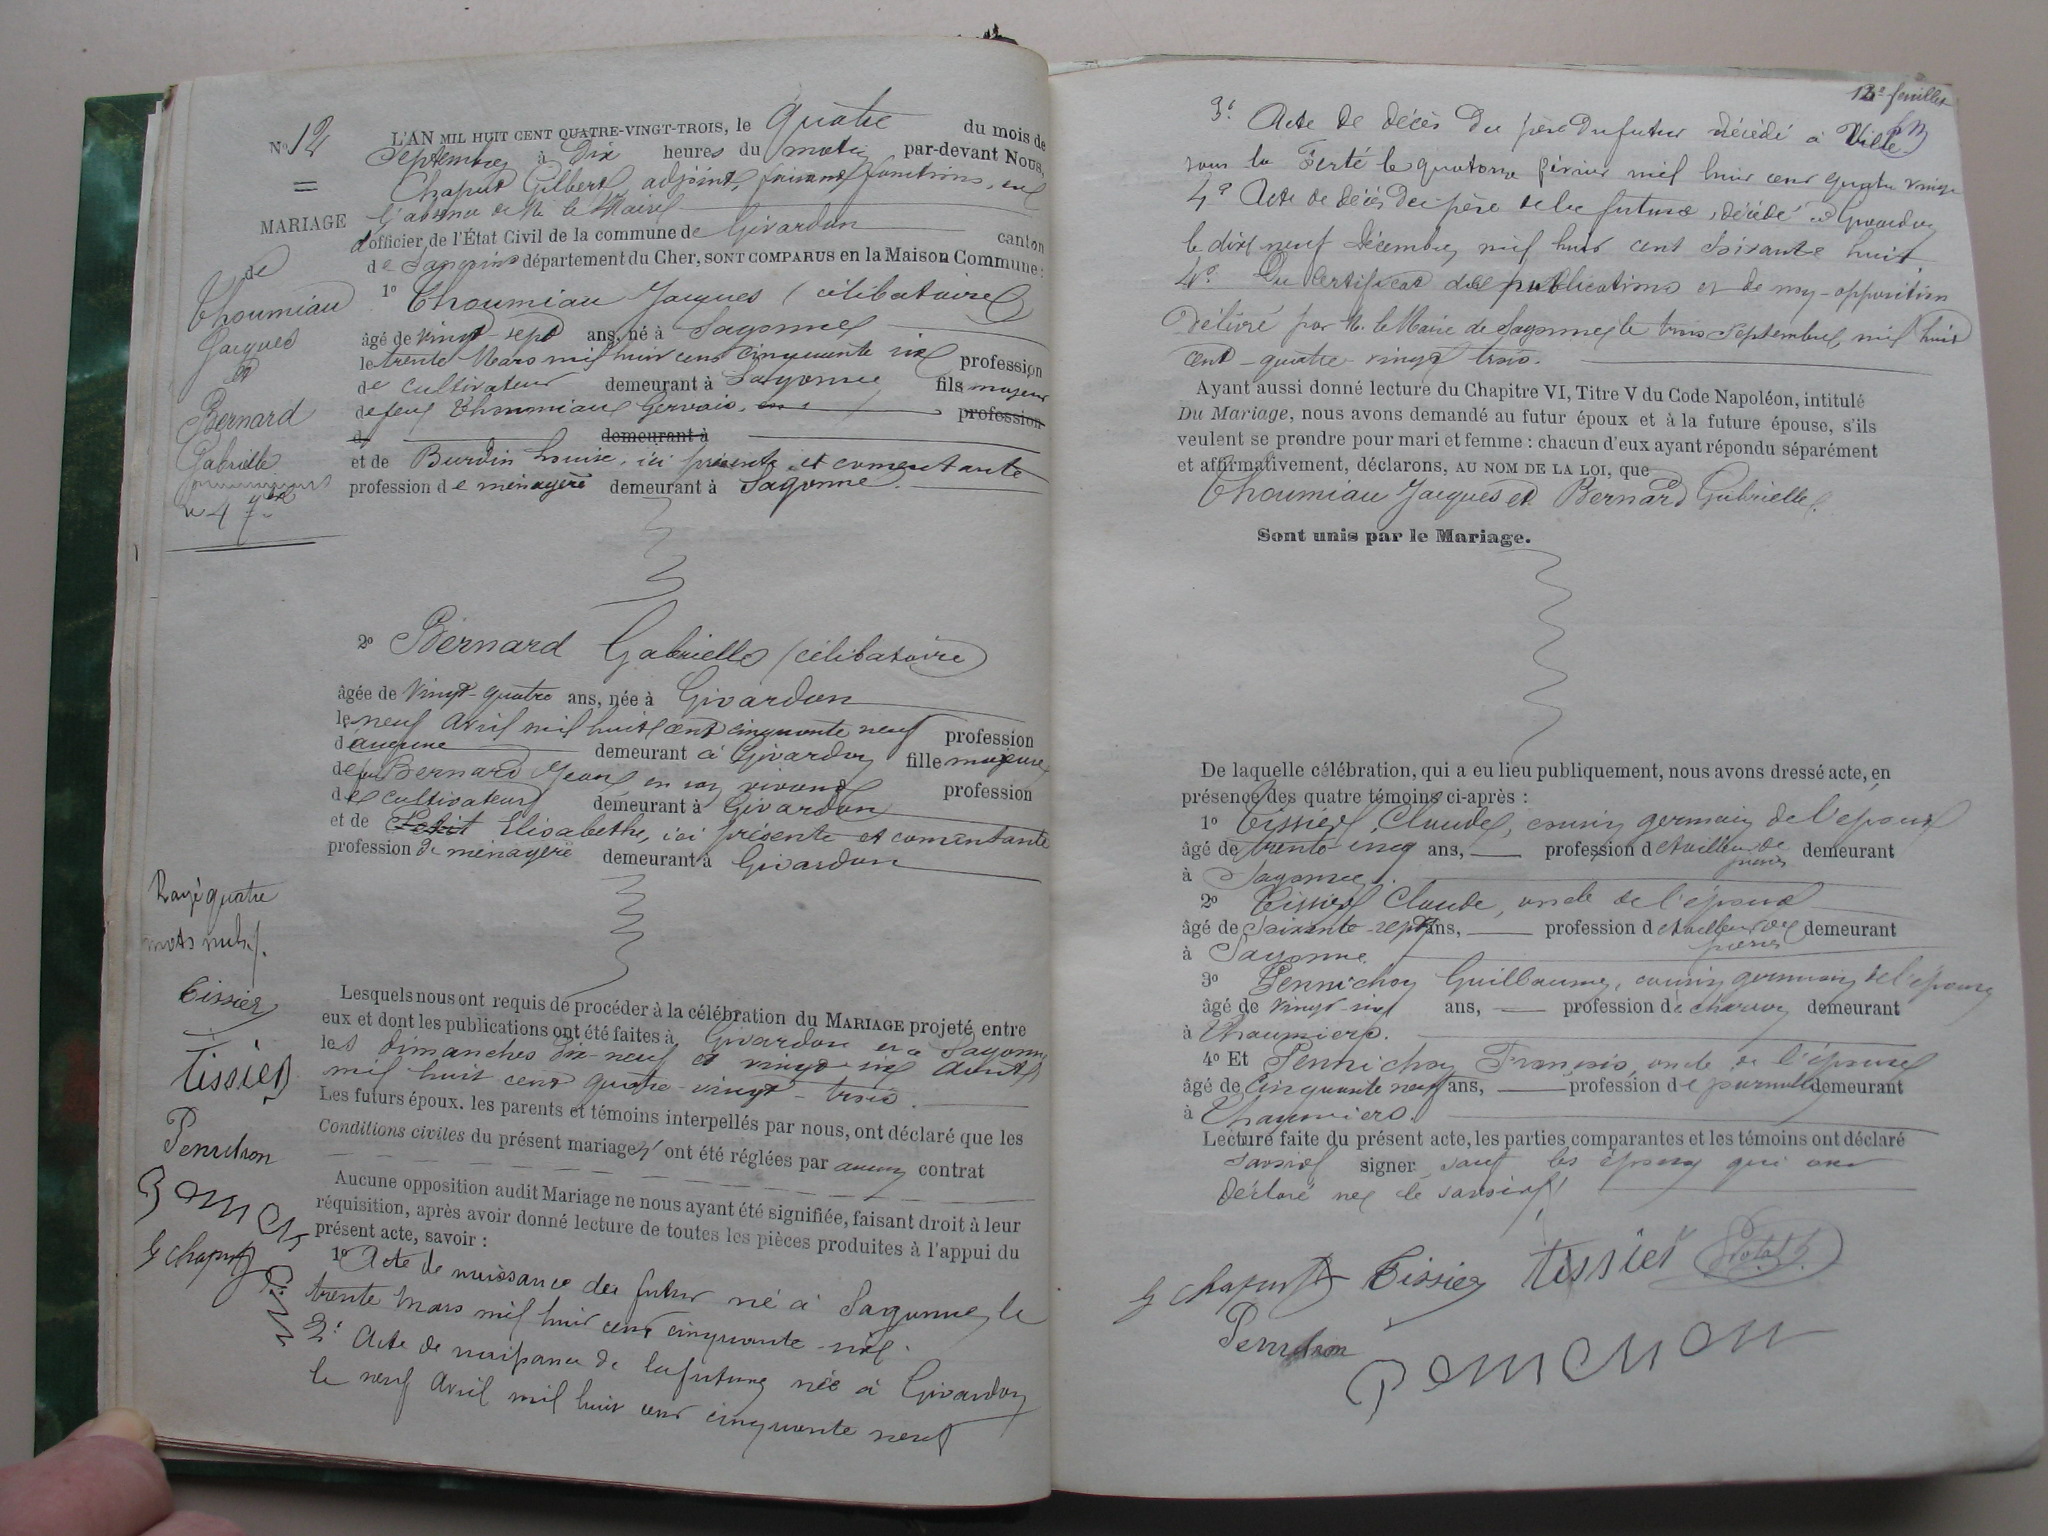 No 12
MARIAGE
de
Thoumiau
Jacques
et
Bernard
Gabrielle
4 7bre
L'AN MIL HUIT CENT QUATRE-VINGT-TROIS, le quatre du mois de
Septembre à dix heures du matin par-devant Nous,
Chaput Gilbert, adjoint, faisant fonctions, en
l'absence de M. le Maire
d'officier de l'État Civil de la commune de Givardon canton
de Sancoins département du Cher, SONT COMPARUS en la Maison Commune :
1º Thoumiau Jacques (célibataire)
âgé de vingt-sept ans, né à Sagonne
le trente Mars mil huit cent cinquante six profession
de cultivateur demeurant à Sagonne fils majeur
de feu Thoumiau Gervais, profession
d demeurant à
et de Burdin Louise, ici présente et consentante
profession de ménagère demeurant à Sagonne.
2º Bernard Gabrielle (célibataire)
âgée de vingt-quatre ans, née à Givardon
le neuf Avril mil huit cent cinquante neuf profession
d'aucune demeurant à Givardon fille majeure
de feu Bernard Jean, en son vivant profession
de cultivateur demeurant à Givardon
et de Elisabethe, ici présente et consentante
profession de ménagère demeurant à Givardon
Rayé quatre
mots nuls.
Tissier
Tissier
G Chaput
Lesquels nous ont requis de procéder à la célébration du MARIAGE projeté entre
eux et dont les publications ont été faites à Givardon et à Sagonne
les dimanches dix-neuf et vingt six Août
mil huit cent quatre-vingt-trois.
Les futurs époux, les parents et témoins interpellés par nous, ont déclaré que les
Conditions civiles du présent mariage n'ont été réglées par aucun contrat
Aucune opposition audit Mariage ne nous ayant été signifiée, faisant droit à leur
réquisition, après avoir donné lecture de toutes les pièces produites à l'appui du
présent acte, savoir :
1º Acte de naissance du futur né à Sagonne le
trente Mars mil huit cent cinquante six.
2º Acte de naissance de la future née à Givardon
le neuf Avril mil huit cent cinquante neuf
12e feuillet
3º Acte de décès du père du futur décédé à Ville
sous la Ferté le quatorze février mil huit cent quatre vingt
4º Acte de décès du père de la future, décédé à Givardon
le dix neuf Décembre mil huit cent soixante huit.
4º Du certificat de publications et de non-opposition
délivré par M. le Maire de Sagonne le trois Septembre mil huit
cent-quatre-vingt trois.
Ayant aussi donné lecture du Chapitre VI, Titre V du Code Napoléon, intitulé
Du Mariage, nous avons demandé au futur époux et à la future épouse, s'ils
veulent se prendre pour mari et femme : chacun d'eux ayant répondu séparément
et affirmativement, déclarons, AU NOM DE LA LOI, que
Thoumiau Jacques et Bernard Gabrielle.
Sont unis par le Mariage.
De laquelle célébration, qui a eu lieu publiquement, nous avons dressé acte, en
présence des quatre témoins ci-après :
1º Tissier Claude, cousin germain de l'époux
âgé de trente-cinq ans, profession de tailleur de pierres demeurant
à Sagonne.
2º Tissier Claude, oncle de l'époux
âgé de soixante-sept ans, profession de tailleur de pierres demeurant
à Sagonne
3º Pennichon Guillaume, cousin germain de l'épouse
âgé de vingt-six ans, profession de charron demeurant
à Chaumiers.
4º Et Pennichon François, oncle de l'épouse
âgé de cinquante neuf ans, profession de journalier demeurant
à Chaumiers.
Lecture faite du présent acte, les parties comparantes et les témoins ont déclaré
savoir signer sauf les époux qui ont
déclaré ne le savoir.
G Chaput Tissier Tissier